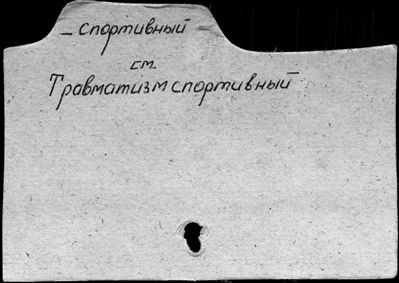 – спортивный –
см.
Травматизм спортивный